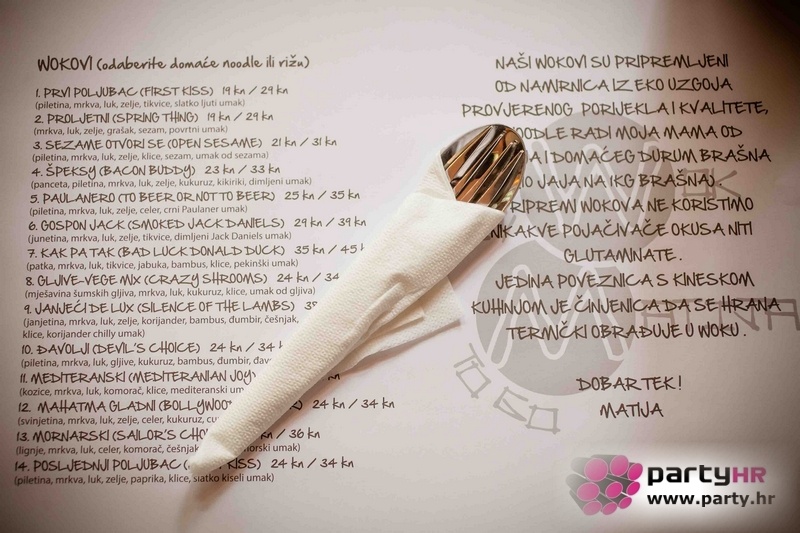 WOKOVI (odaberite domaće noodle ili rižu)
1. PRVI POLJUBAC (FIRST KISS) 19 kn / 29 kn
(piletina, mrkva, luk, zelje, tikvice, slatko ljuti umak)
2. PROLJETNI (SPRING THING) 19 kn / 29 kn
(mrkva, luk, zelje, grašak, sezam, povrtni umak)
3. SEZAME OTVORI SE (OPEN SESAME) 21 kn / 31 kn
(piletina, mrkva, luk, zelje, klice, sezam, umak od sezama)
4. ŠPEKSY (BACON BUDDY) 23 kn / 33 kn
(panceta, piletina, mrkva, luk, zelje, kukuruz, kikiriki, dimljeni umak)
5. PAULANERO (TO BEER OR NOT TO BEER) 25 kn / 35 kn
(piletina, mrkva, luk, zelje, celer, crni Paulaner umak)
6. GOSPON JACK (SMOKED JACK DANIELS) 29 kn / 39 kn
(junetina, mrkva, luk, zelje, tikvice, dimljeni Jack Daniels umak)
7. KAK PATAK (BAD LUCK DONALD DUCK) 35 kn / 45
(patka, mrkva, luk, tikvice, jabuka, bambus, klice, pekinški umak)
8. GLJIVE-VEGE MIX (CRAZY SHROOMS) 24 kn / 34
(mješavina šumskih gljiva, mrkva, luk, kukuruz, klice, umak od gljiva)
9. JANJEĆI DE LUX (SILENCE OF THE LAMBS)
(janjetina, mrkva, luk, zelje, korijander, bambus, đumbir, češnjak,
klice, korijander chilly umak)
10. ĐAVOLJI (DEVIL'S CHOICE) 24 kn / 34
(piletina, mrkva, luk, gljive, kukuruz, bambus, đumbir,
11. MEDITERANSKI (MEDITERANIAN JOY
(kozice, mrkva, luk, komorač, klice, mediteranski
12. MAHATMA GLADNI (BOLLYWOO 24 kn / 34 kn
(svinjetina, mrkva, luk, zelje, celer, kukuruz,
13. MORNARSKI (SAILOR'S / 36 kn
(lignje, mrkva, luk, celer, komorač, umak)
14. POSLJEDNJI POLJUBAC KISS) 24 kn / 34 kn
(piletina, mrkva, luk, zelje, paprika, klice, slatko kiseli umak)
NAŠI WOKOVI SU PRIPREMLJENI
OD NAMIRNICA IZ EKO UZGOJA
PROVJERENOG PORIJEKLA I KVALITETE,
NOODLE RADI MOJA MAMA OD
I DOMAĆEG DURUM BRAŠNA
JAJA NA 1KG BRAŠNA.
PRIPREMI WOKOVA NE KORISTIMO
NIKAKVE POJAČIVAČE OKUSA NITI
GLUTAMNATE.
JEDINA POVEZNICA S KINESKOM
KUHINJOM JE ČINJENICA DA SE HRANA
TERMIČKI OBRAĐUJE U WOKU.
DOBAR TEK!
MATIJA
TO GO
partyHR
www.party.hr